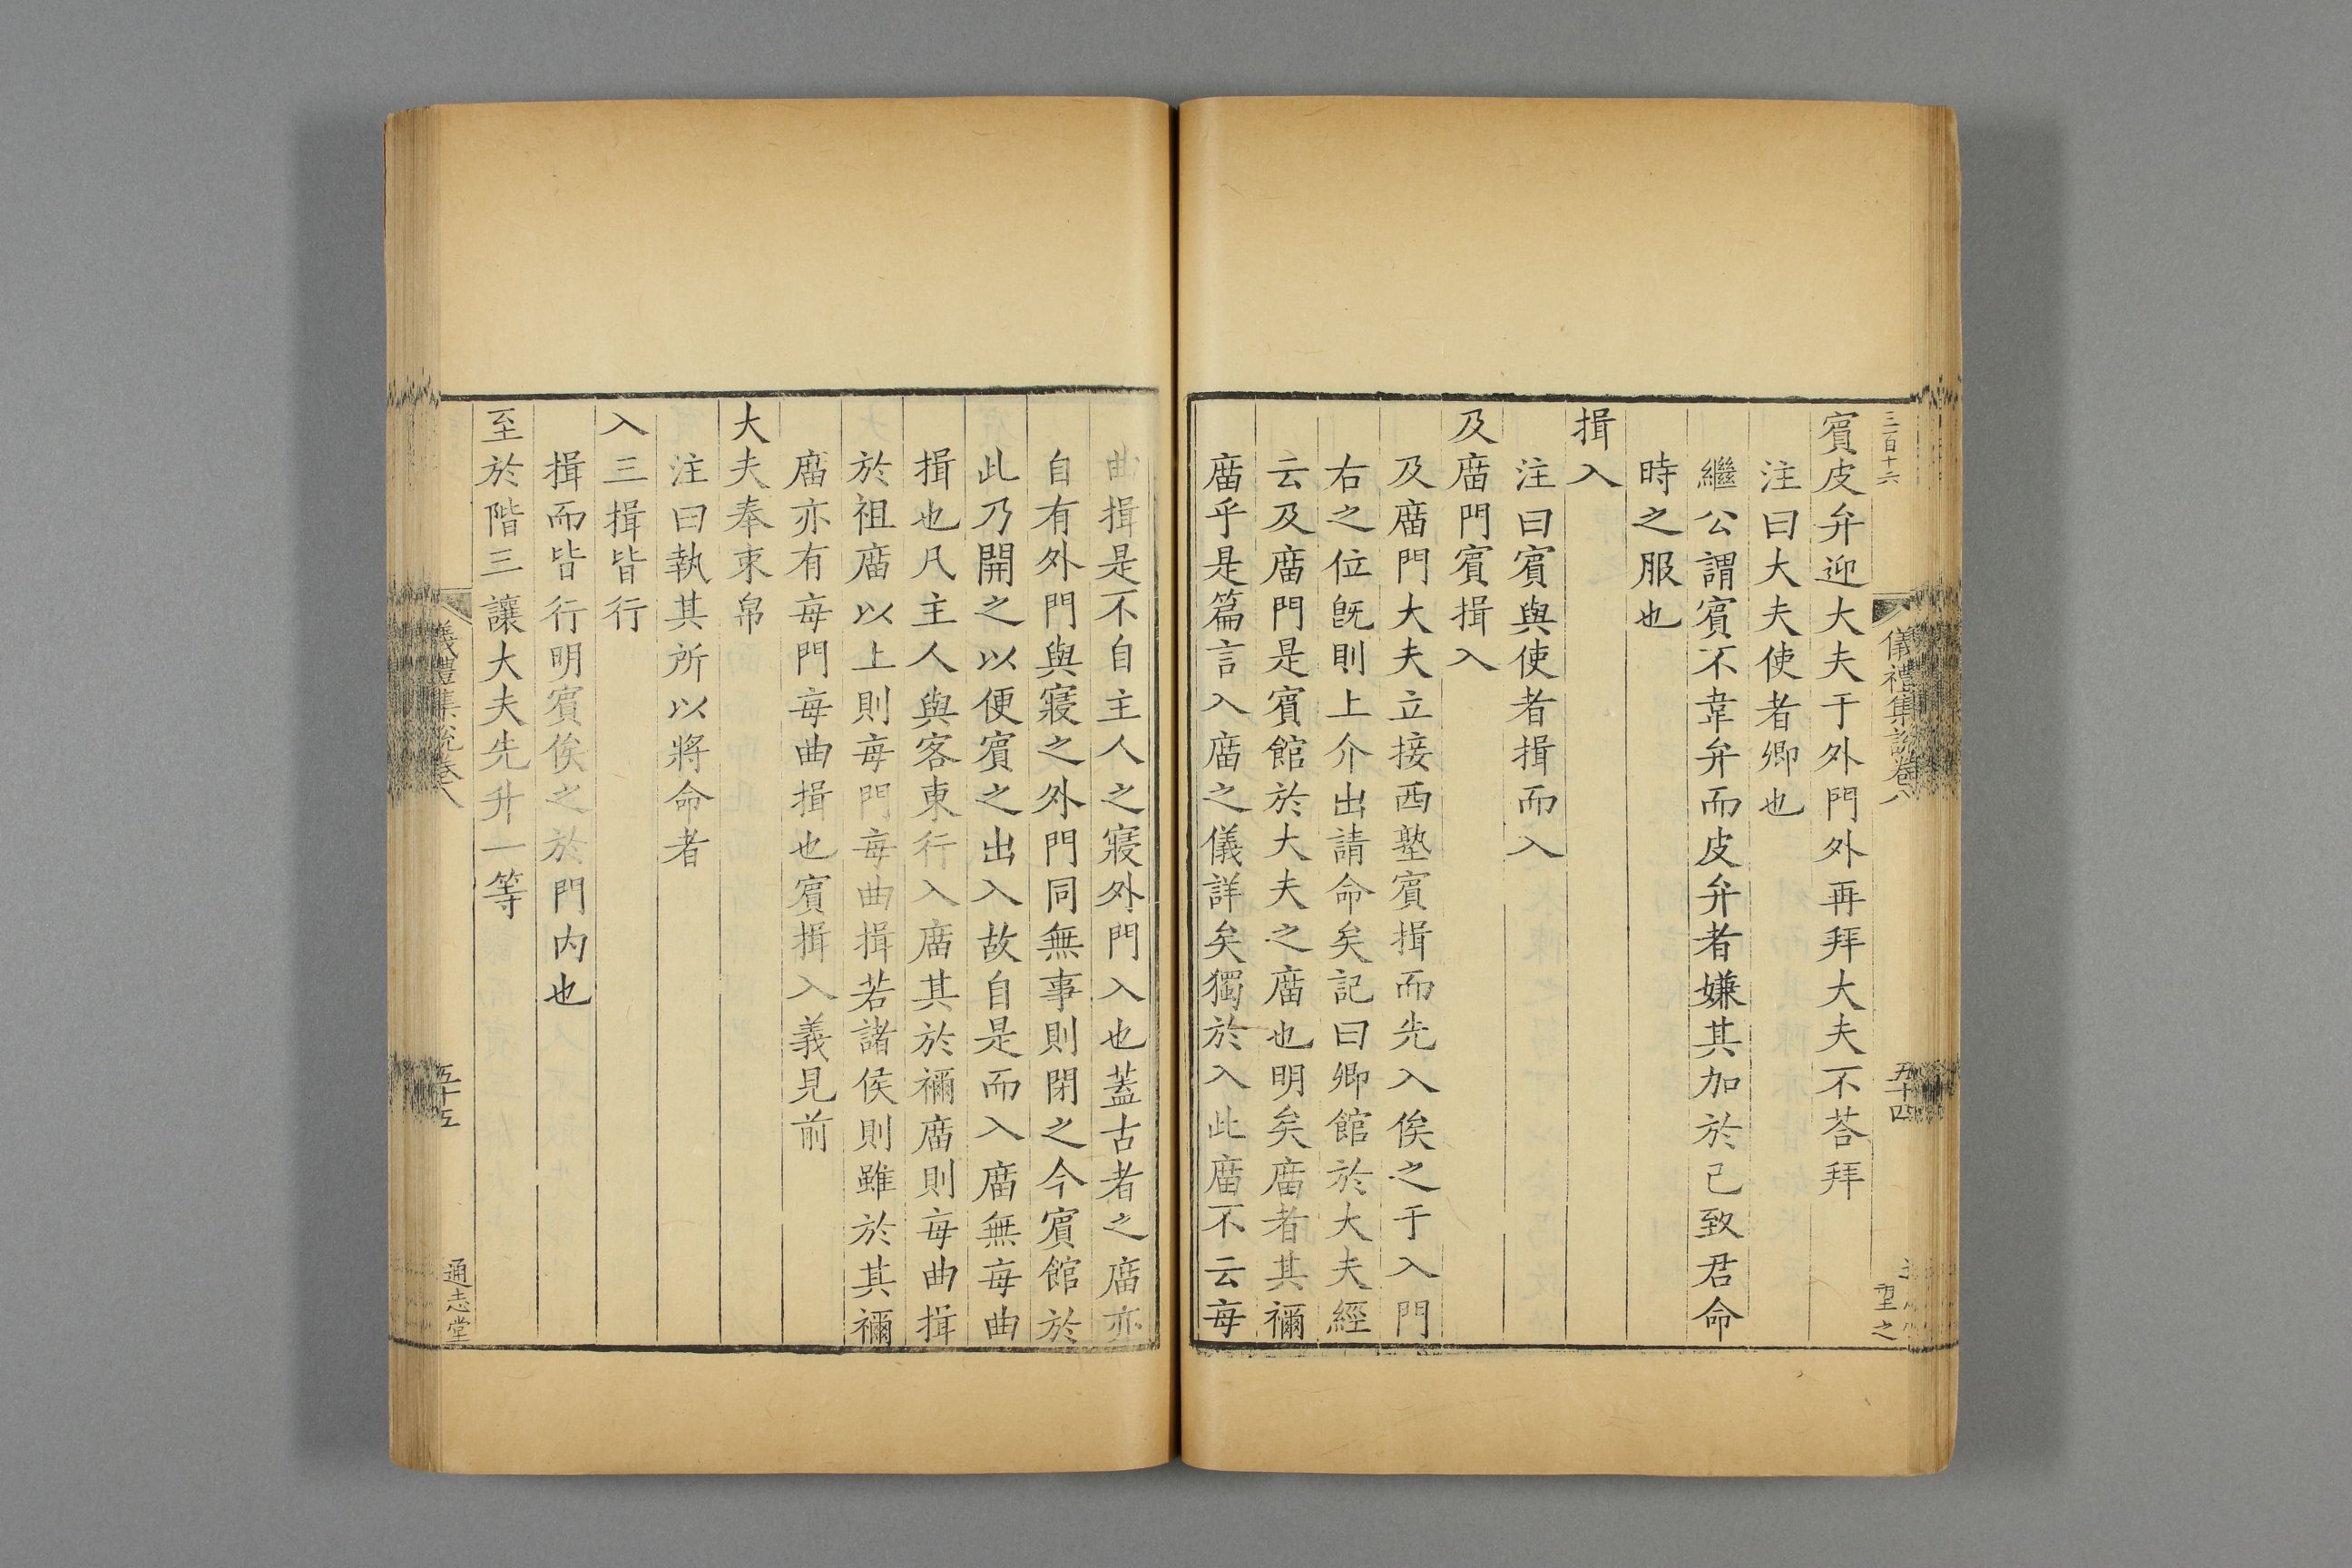 三百十六
儀禮集說卷八
五十四
賓皮弁迎大夫于外門外再拜大夫不荅拜
注曰大夫使者卿也
繼公謂賓不韋弁而皮弁者嫌其加於己致君命
時之服也
揖入
注曰賓與使者揖而入
及庿門賓揖入
及庿門大夫立接西塾賓揖而先入俟之于入門
右之位旣則上介出請命矣記曰卿館於大夫經
云及庿門是賓館於大夫之庿也明矣庿者其禰
庿乎是篇言入庿之儀詳矣獨於入此庿不云每
曲揖是不自主人之寢外門入也蓋古者之庿亦
自有外門與寢之外門同無事則閉之今賓館於
此乃開之以便賓之出入故自是而入庿無每曲
揖也凡主人與客東行入庿其於禰庿則每曲揖
於祖庿以上則每門每曲揖若諸侯則雖於其禰
庿亦有每門每曲揖也賓揖入義見前
大夫奉束帛
注曰執其所以將命者
入三揖皆行
揖而皆行明賓俟之於門內也
至於階三讓大夫先升一等
儀禮集說卷八
五十五
通志堂